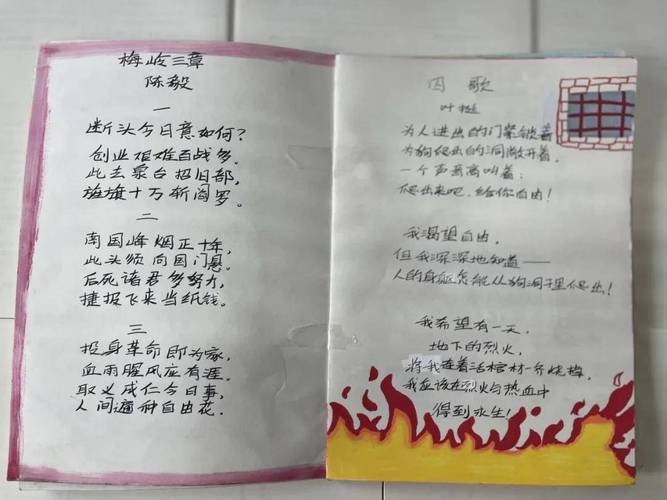 梅岭三章
陈毅
一
断头今日意如何?
创业艰难百战多。
此去泉台招旧部,
旌旗十万斩阎罗。
二
南国烽烟正十年,
此头须向国门悬。
后死诸君多努力,
捷报飞来当纸钱。
三
投身革命即为家,
血雨腥风应有涯。
取义成仁今日事,
人间遍种自由花。
囚歌
叶挺
为人进出的门紧锁着
为狗爬出的洞敞开着,
一个声音高叫着:
爬出来吧,给你自由!
我渴望自由,
但我深深地知道——
人的身躯怎能从狗洞子里爬出!
我希望有一天,
地下的烈火,
将我连着活棺材一齐烧掉,
我应该在烈火与热血中
得到永生!